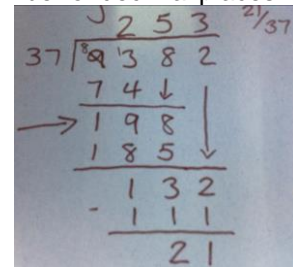 2 5 3 21/37
37 9 3 8 2
7 4
1 9 8
1 8 5
1 3 2
- 1 1 1
2 1